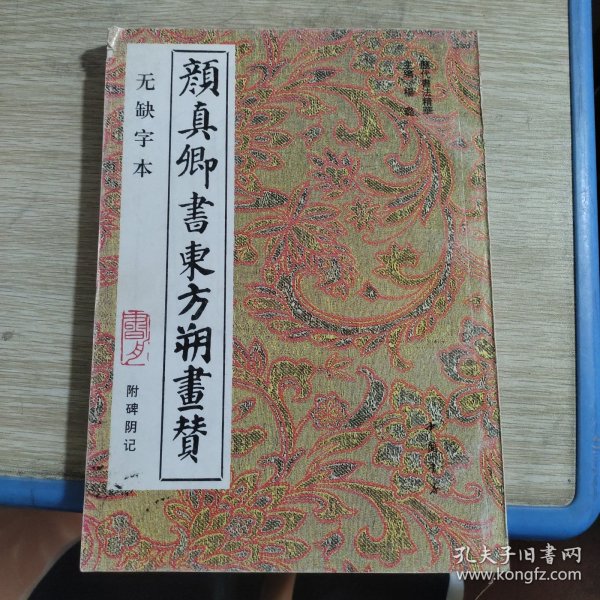 顔真卿書東方朔畫贊
无缺字本
附碑阴记
歷代書法精華
主编
孔夫子旧书网
www.kongfz.com